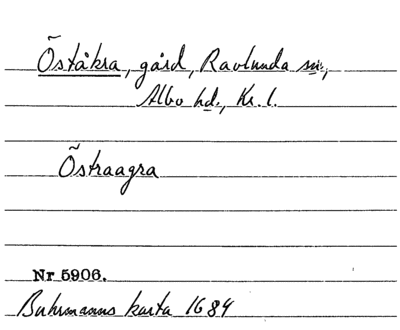 Öståkra, gård, Ravlunda sn.,
Albo hd., Kr. l.
Östraagra
Nr 5906.
Buhrmanns karta 1684